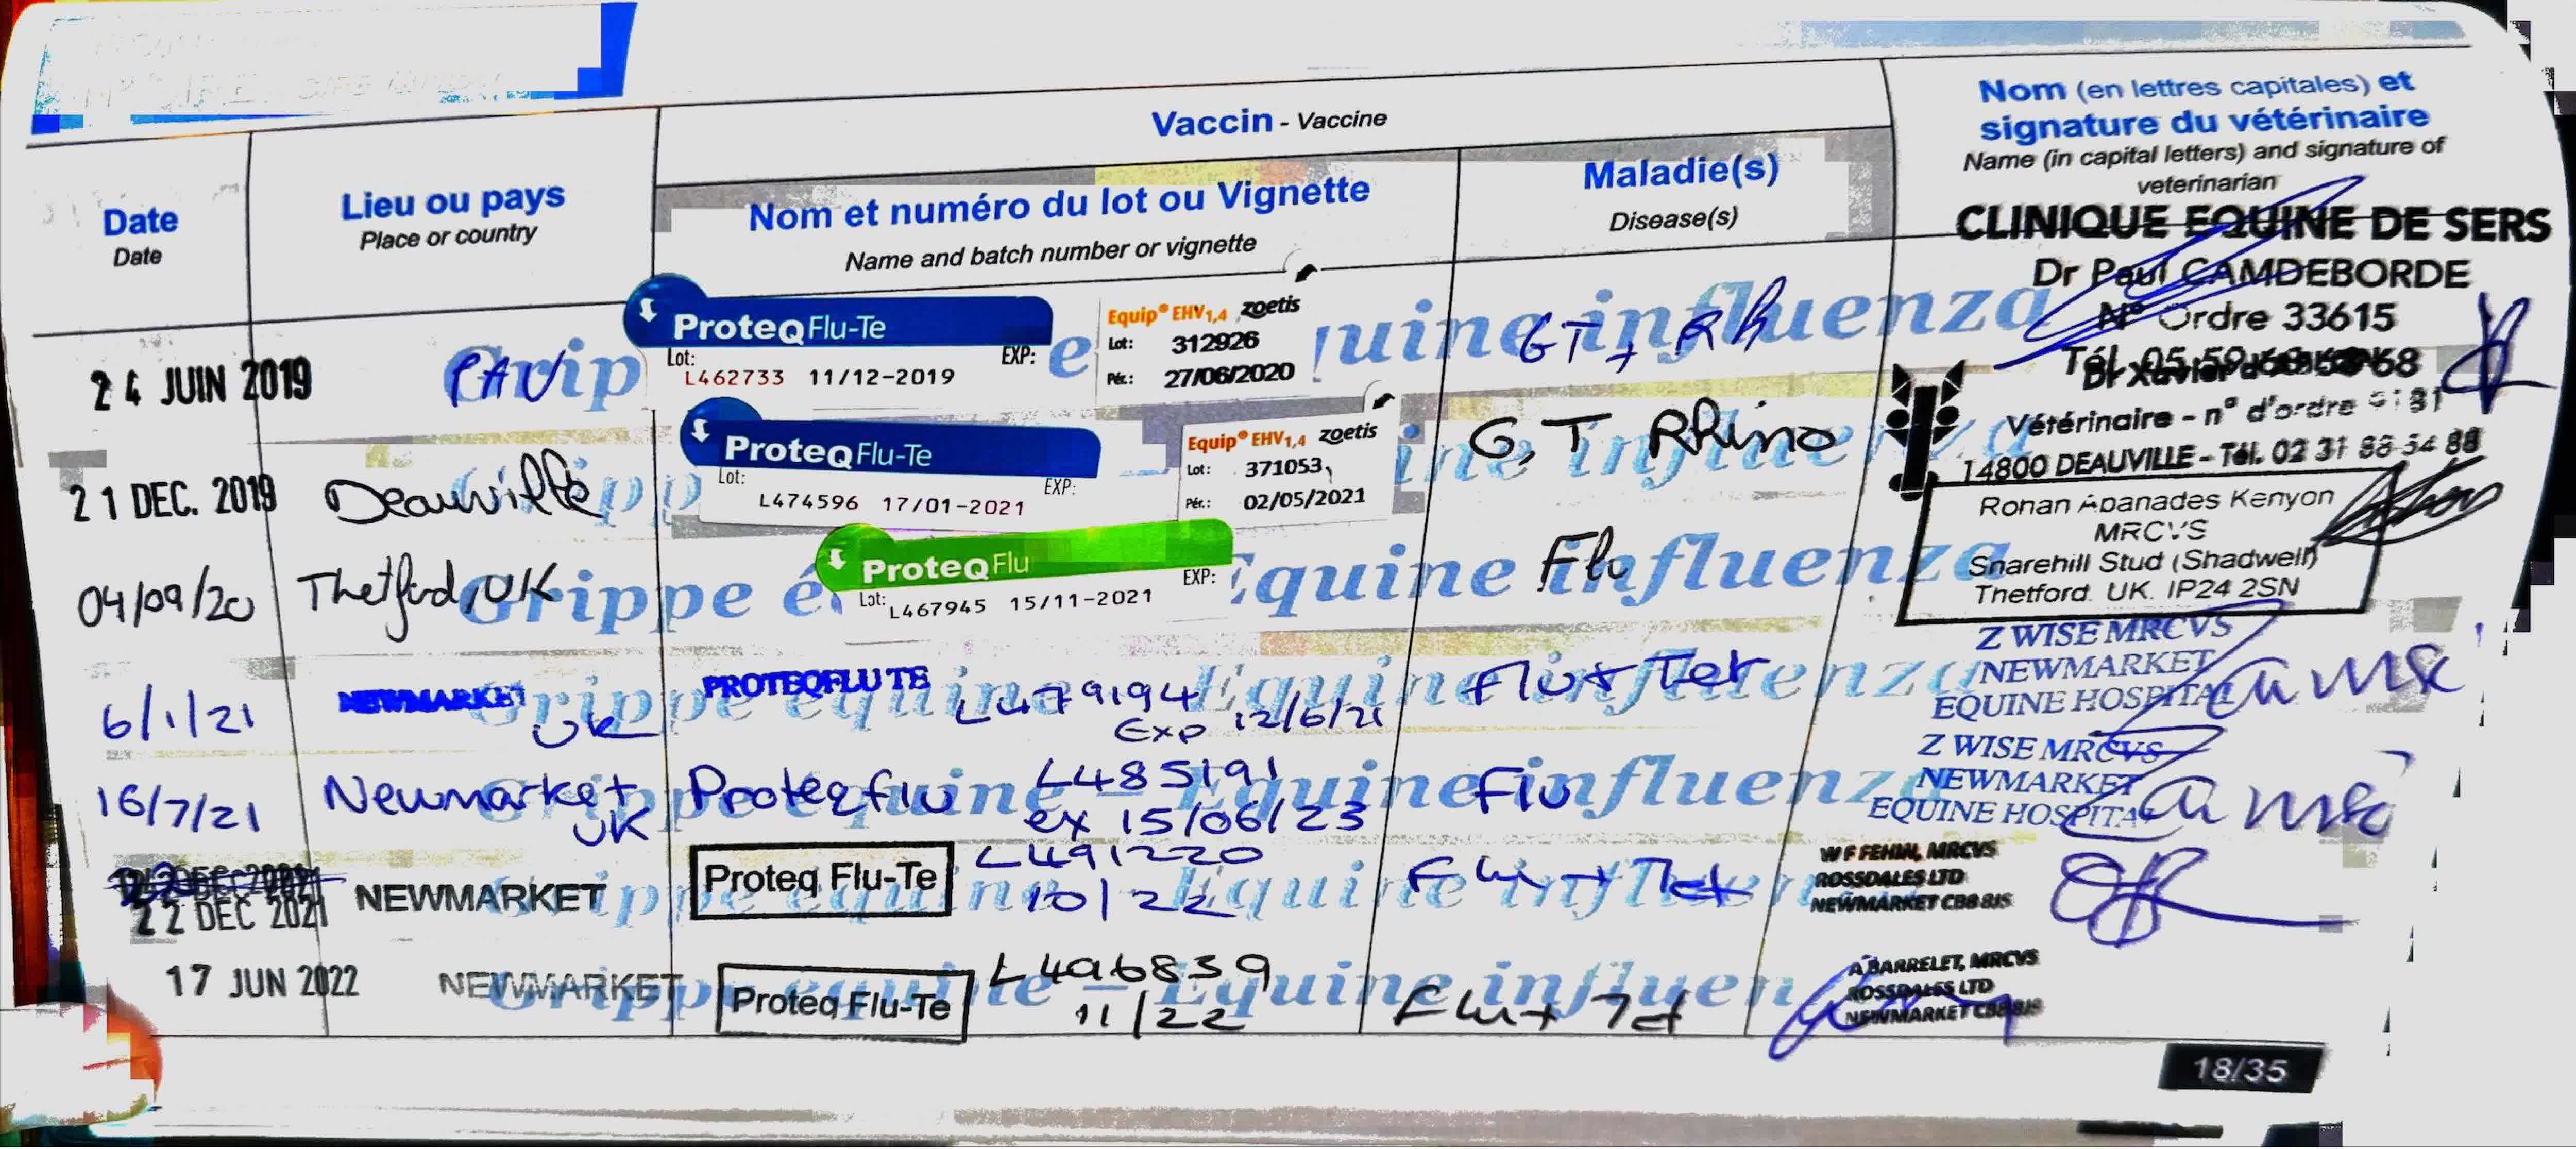 Vaccin - Vaccine
Nom (en lettres capitales) et
signature du vétérinaire
Name (in capital letters) and signature of
veterinarian
Date
Date
Lieu ou pays
Place or country
Nom et numéro du lot ou Vignette
Name and batch number or vignette
Maladie(s)
Disease(s)
24 JUIN 2019
PAU
ProteqFlu-Te
Lot: EXP:
L462733 11/12-2019
Equip® EHV1,4 zoetis
Lot: 312926
Pér.: 27/06/2020
GT + Rh
CLINIQUE EQUINE DE SERS
Dr Paul CAMDEBORDE
N° Ordre 33615
Tél. 05 59 68 68
21 DEC. 2019
Deauville
ProteqFlu-Te
Lot: EXP:
L474596 17/01-2021
Equip® EHV1,4 zoetis
Lot: 371053
Pér.: 02/05/2021
G, T Rhino
Dr Xavier
Vétérinaire - n° d'ordre
14800 DEAUVILLE - Tél. 02 31 88 54 88
04/09/20
Thetford, UK
ProteqFlu
Lot: EXP:
L467945 15/11-2021
Grippe Equine influenza
Flu
Ronan Kenyon
MRCVS
Snarehill Stud (Shadwell)
Thetford. UK. IP24 2SN
6/1/21
NEWMARKET
UK
PROTEQFLU TE
L479194
Exp 12/6/21
Grippe équine - Equine influenza
Flu + Tet
Z WISE MRCVS
NEWMARKET
EQUINE HOSPITAL
16/7/21
Newmarket
UK
Proteqflu
L485191
ex 15/06/23
Grippe équine - Equine influenza
Flu
Z WISE MRCVS
NEWMARKET
EQUINE HOSPITAL
22 DEC 2021
NEWMARKET
Proteq Flu-Te
L491220
10/22
Grippe équine - Equine influenza
Flu + Tet
W F FEHIN, MRCVS
ROSSDALES LTD
NEWMARKET CB8 8JS
17 JUN 2022
NEWMARKET
Proteq Flu-Te
L496839
11/22
Grippe équine - Equine influen
Flu + Tet
A BARRELET, MRCVS
ROSSDALES LTD
NEWMARKET CB8 8JS
18/35